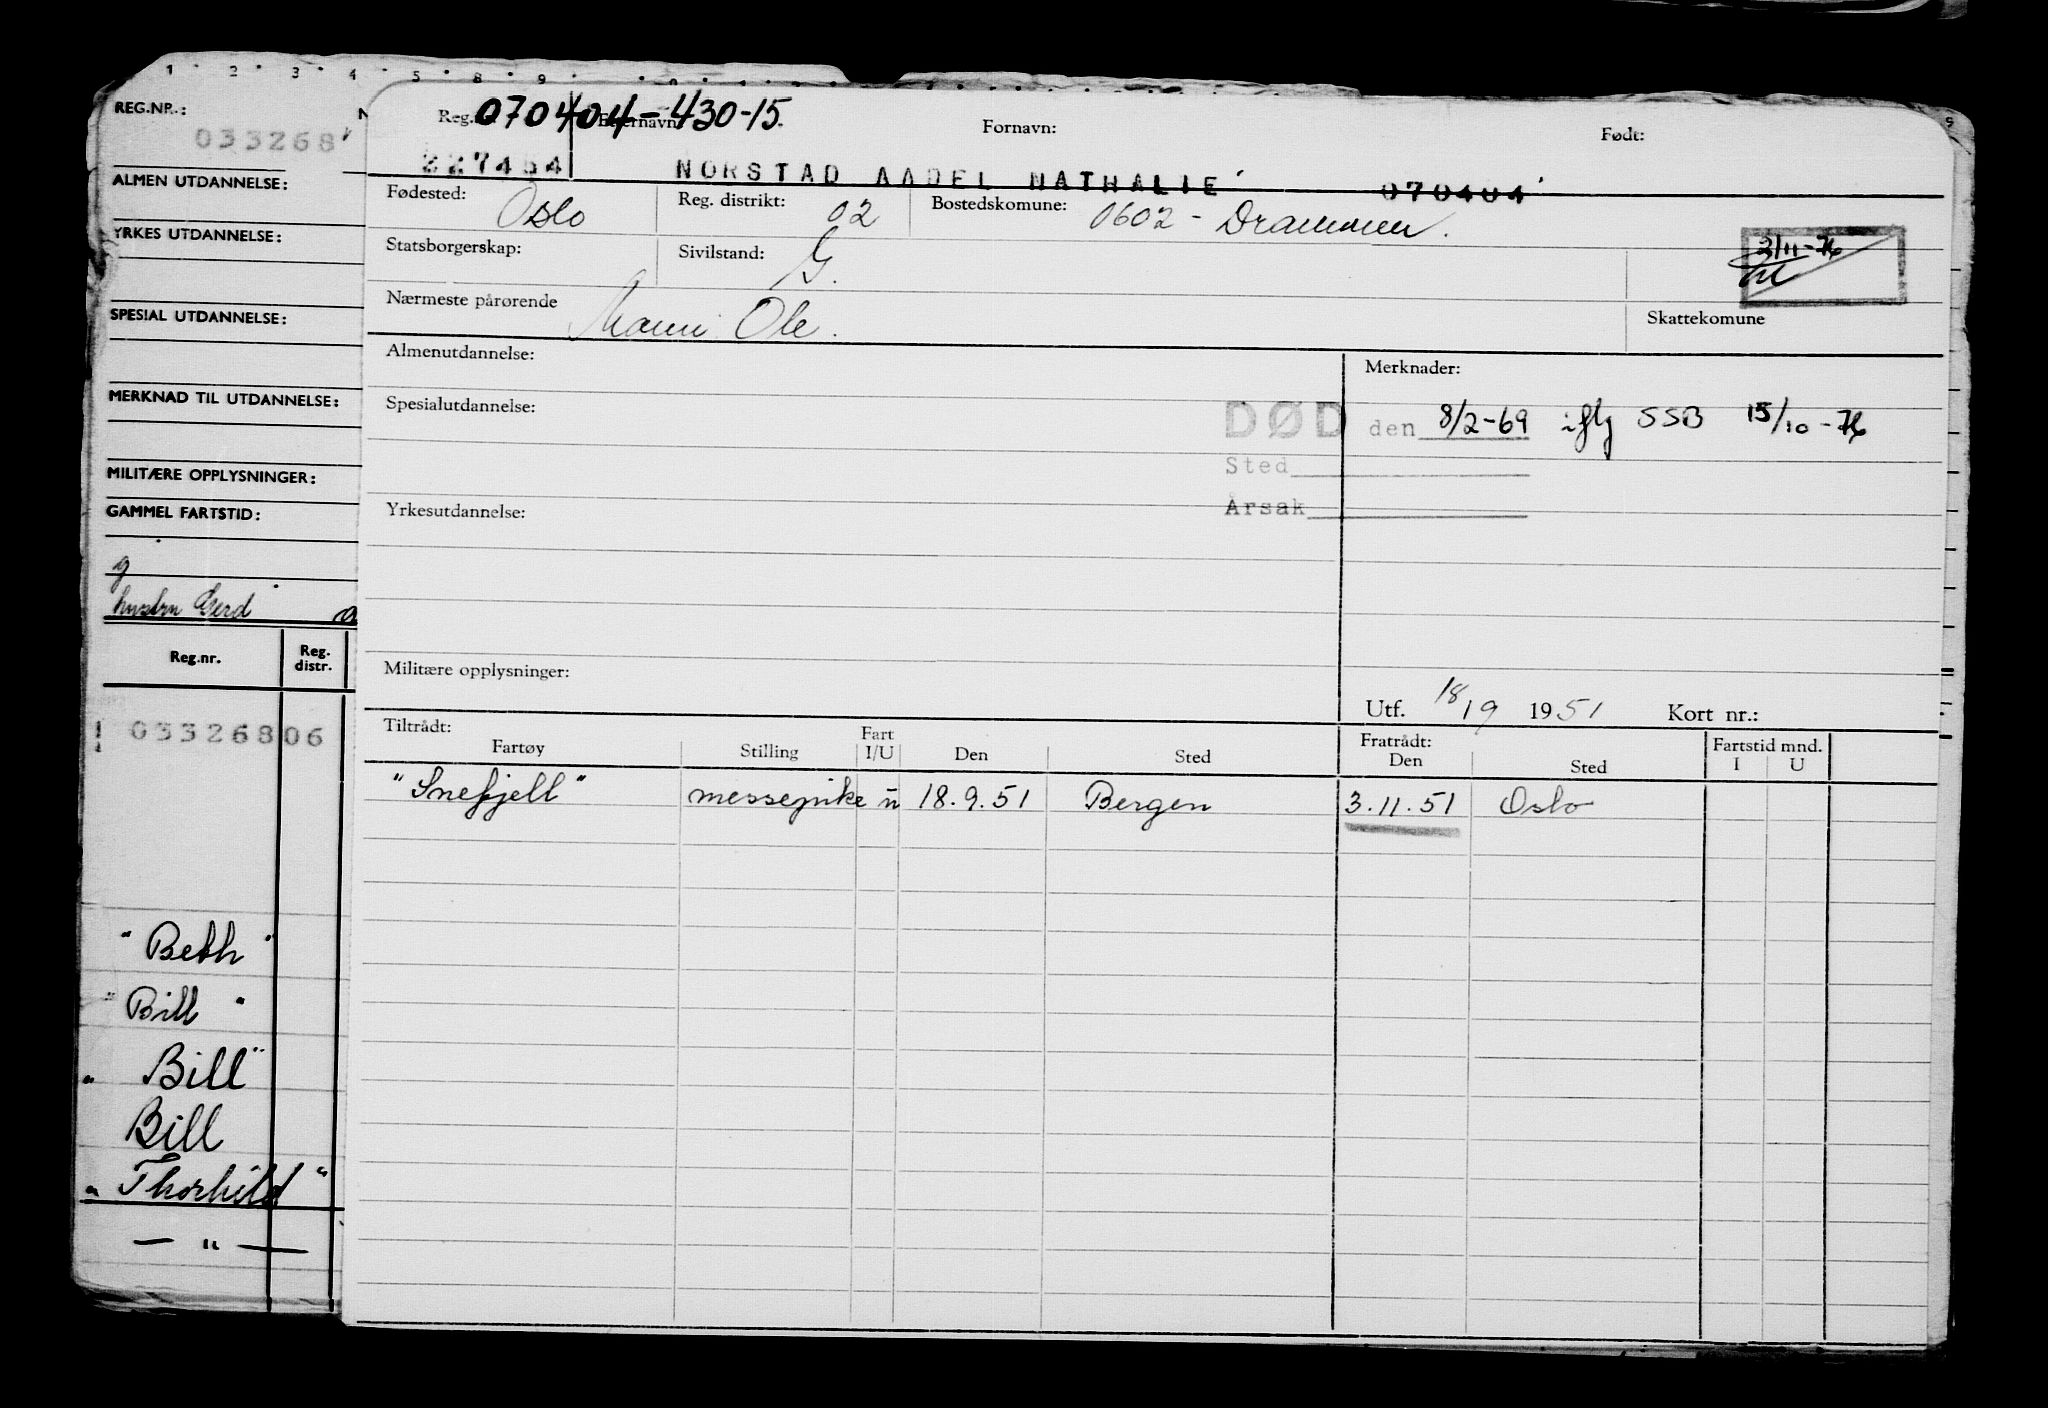 REG.NR.:
033268
ALMEN UTDANNELSE:
YRKES UTDANNELSE:
SPESIAL UTDANNELSE:
MERKNAD TIL UTDANNELSE:
MILITÆRE OPPLYSNINGER:
GAMMEL FARTSTID:
g
hustru Gerd
Reg.nr. Reg. distr.
03326806
"Beth"
"Bill"
"Bill"
Bill
"Thorhild"
— " —
070404-430-15
Reg. Etternavn: Fornavn: Født:
227454 NORSTAD AADEL NATHALIE 070404
Fødested: Oslo Reg. distrikt: 02 Bostedskomune: 0602 - Drammen.
Statsborgerskap: Sivilstand: G. 2/11-76
Nærmeste pårørende Mann: Ole. Skattekomune
Almenutdannelse: Merknader:
Spesialutdannelse: DØD den 8/2-69 iflg SSB 15/10-76
Sted
Yrkesutdannelse: Årsak
Militære opplysninger:
Utf. 18/9 1951 Kort nr.:
Tiltrådt: Fart Fratrådt: Fartstid mnd.
Fartøy Stilling I/U Den Sted Den Sted I U
"Snefjell" messepike u 18.9.51 Bergen 3.11.51 Oslo